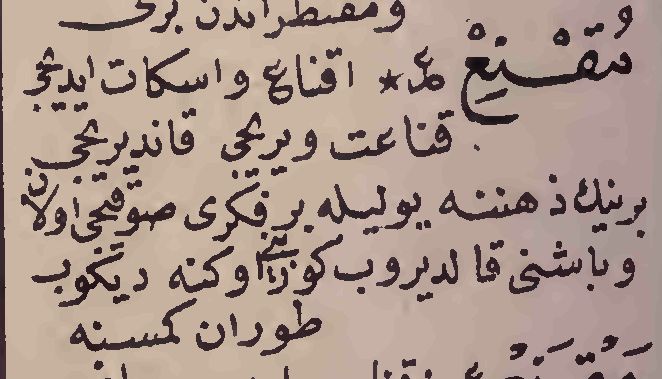 ومفطراتدن برى
مُقْنِعْ ع ★ اقناع و اسكات ايديجى
قناعت ويريجى قانديريجى
برينك ذهننه يوليله بر فكرى صوقيجى اولان
و باشنى قالديروب كوزينى اوكنه ديكوب
طوران كمسنه